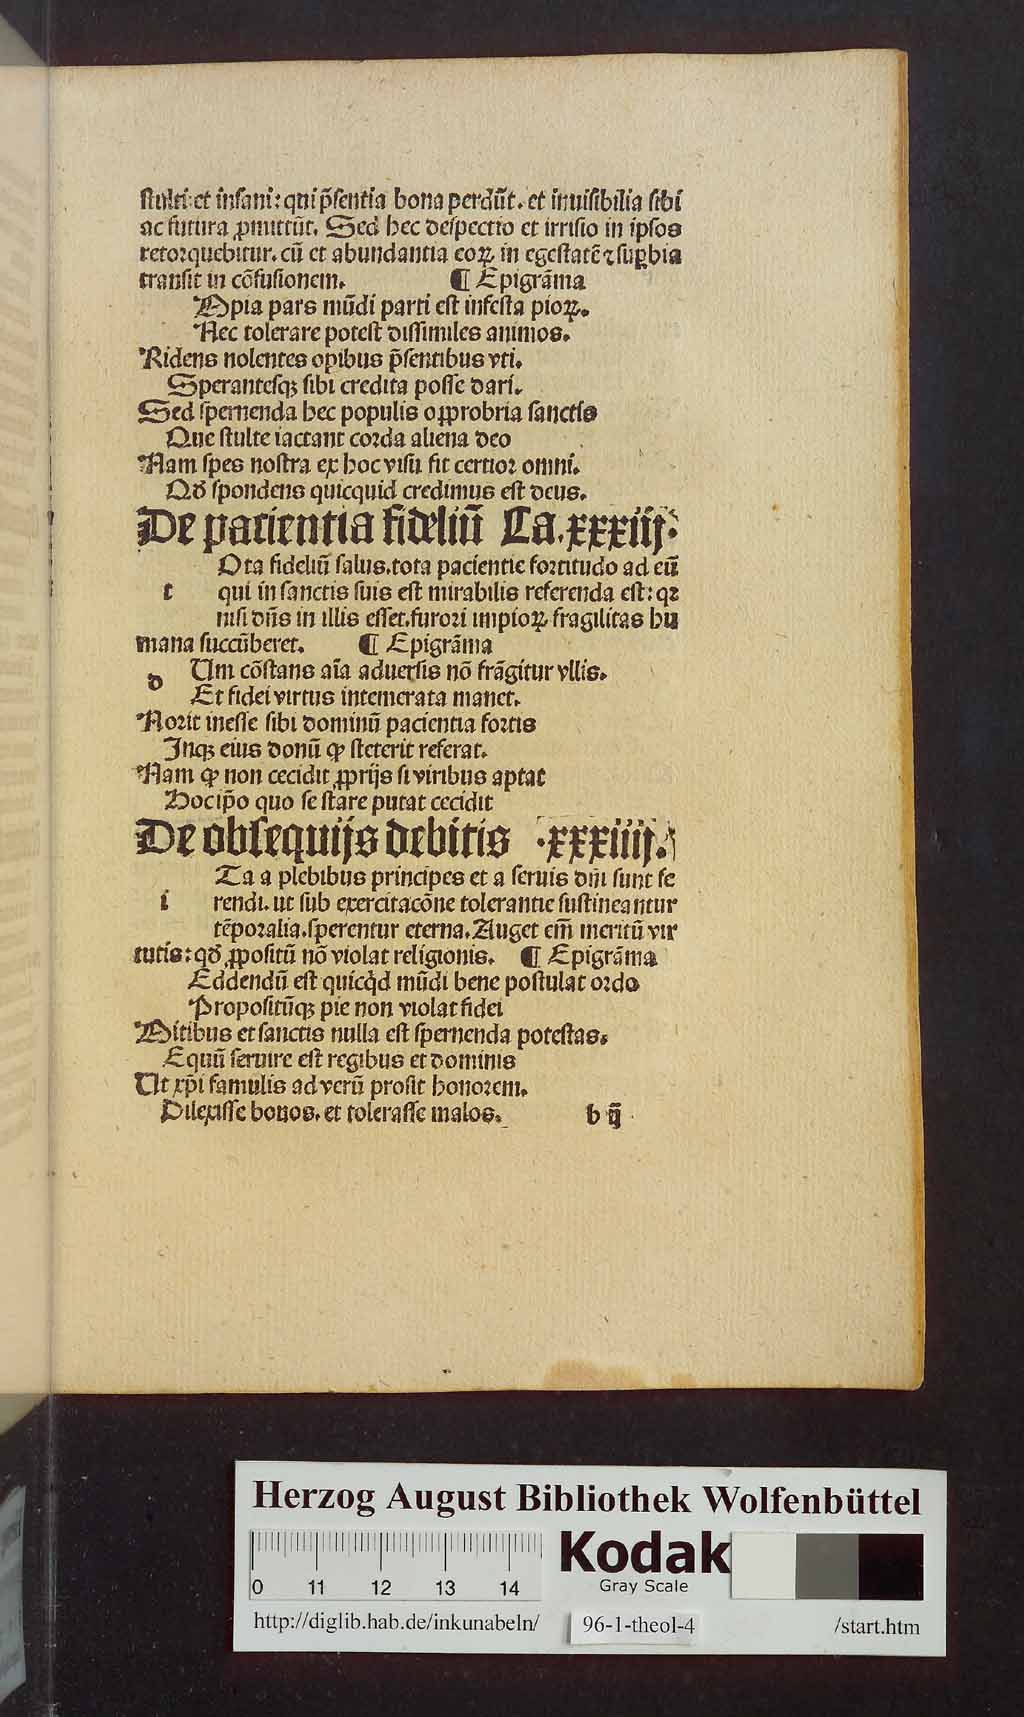 ſtulti: et inſani: qui p̃ſentia bona perdūt. et inuiſibilia ſibi
ac futura ꝓmittūt. Sed hec deſpectio et irriſio in ipſos
retorquebitur. cū et abundantia eoꝝ in egeſtatē ⁊ ſuꝑbia
tranſit in cōfuſionem. ¶ Epigrāma
Impia pars mūdi parti eſt infeſta pioꝝ.
Nec tolerare poteſt diſſimiles animos.
Ridens nolentes opibus p̃ſentibus vti.
Sperantesqꝫ ſibi credita poſſe dari.
Sed ſpernenda hec populis opꝓbria ſanctis
Que ſtulte iactant corda aliena deo
Nam ſpes noſtra ex hoc viſu fit certior omni.
Qd̓ ſpondens quicquid credimus eſt deus.
De pacientia fideliū Ca. xxxiij.
Ota fideliū ſalus. tota pacientie fortitudo ad eū
t qui in ſanctis ſuis eſt mirabilis referenda eſt: qꝛ
niſi dñs in illis eſſet. furori impioꝝ fragilitas hu
mana ſuccūberet. ¶ Epigrāma
d Um cōſtans aīa aduerſis nō frāgitur vllis.
Et fidei virtus intemerata manet.
Norit ineſſe ſibi dominū pacientia fortis
Inqꝫ eius donū ꝙ ſteterit referat.
Nam ꝙ non cecidit ꝓprijs ſi viribus aptat
Hoc ip̄o quo ſe ſtare putat cecidit
De obſequijs debitis .xxxiiij.
Ta a plebibus principes et a ſeruis dn̄i ſunt fe
i rendi. ut ſub exercitacōne tolerantie ſuſtineantur
tēporalia. ſperentur eterna. Auget em̄ meritū vir
tutis: qd̓ ꝓpoſitū nō violat religionis. ¶ Epigrāma
Eddendū eſt quicq̇d mūdi bene poſtulat ordo
Propoſitūqꝫ pie non violat fidei
Mitibus et ſanctis nulla eſt ſpernenda poteſtas.
Equū ſeruire eſt regibus et dominis
Ut xp̄i famulis ad verū proſit honorem.
Dilexiſſe bonos. et toleraſſe malos. b ij
Herzog August Bibliothek Wolfenbüttel
0 11 12 13 14
Kodak
Gray Scale
http://diglib.hab.de/inkunabeln/ 96-1-theol-4 /start.htm